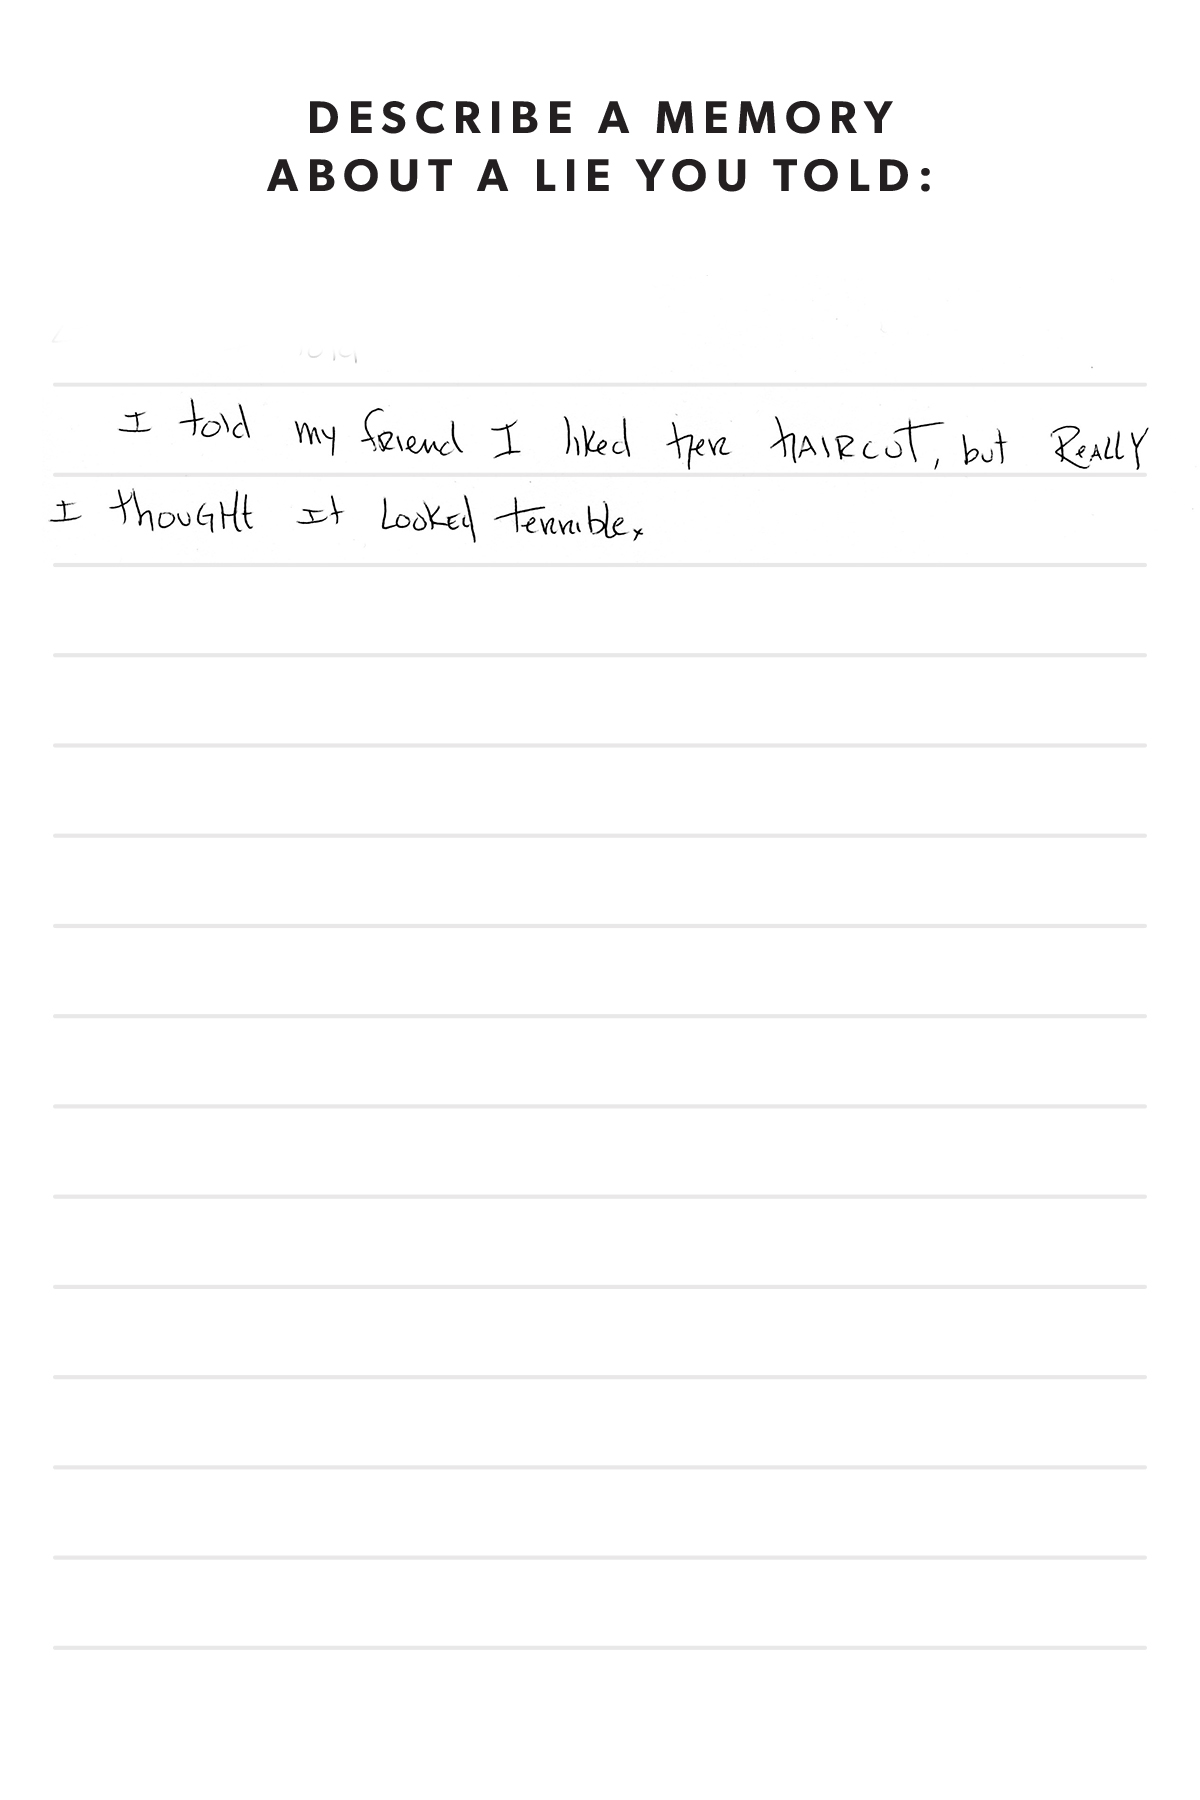 DESCRIBE A MEMORY
ABOUT A LIE YOU TOLD:
I told my friend I liked her HAIRCUT, but ReALLY
I thouGHt It LooKEd terrible.